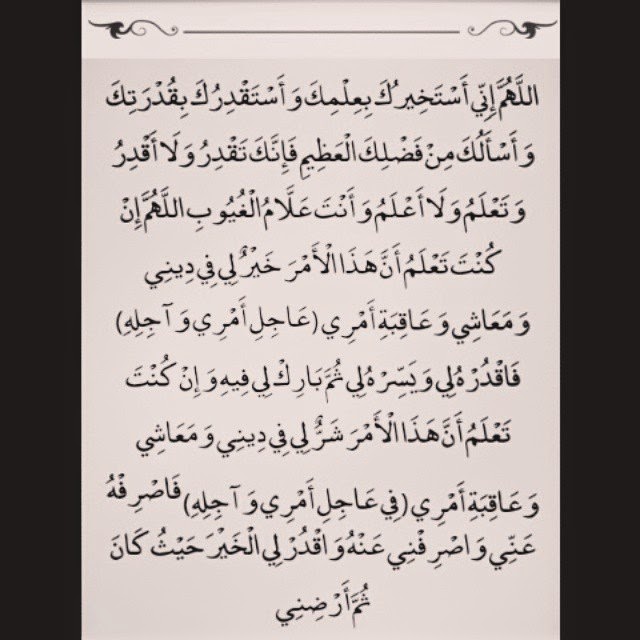 اللَّهُمَّ إِنِّي أَسْتَخِيرُكَ بِعِلْمِكَ وَأَسْتَقْدِرُكَ بِقُدْرَتِكَ
وَأَسْأَلُكَ مِنْ فَضْلِكَ الْعَظِيمِ فَإِنَّكَ تَقْدِرُ وَلَا أَقْدِرُ
وَتَعْلَمُ وَلَا أَعْلَمُ وَأَنْتَ عَلَّامُ الْغُيُوبِ اللَّهُمَّ إِنْ
كُنْتَ تَعْلَمُ أَنَّ هَذَا الْأَمْرَ خَيْرٌ لِي فِي دِينِي
وَمَعَاشِي وَعَاقِبَةِ أَمْرِي (عَاجِلِ أَمْرِي وَآجِلِهِ)
فَاقْدُرْهُ لِي وَيَسِّرْهُ لِي ثُمَّ بَارِكْ لِي فِيهِ وَإِنْ كُنْتَ
تَعْلَمُ أَنَّ هَذَا الْأَمْرَ شَرٌّ لِي فِي دِينِي وَمَعَاشِي
وَعَاقِبَةِ أَمْرِي (فِي عَاجِلِ أَمْرِي وَآجِلِهِ) فَاصْرِفْهُ
عَنِّي وَاصْرِفْنِي عَنْهُ وَاقْدُرْ لِي الْخَيْرَ حَيْثُ كَانَ
ثُمَّ أَرْضِنِي